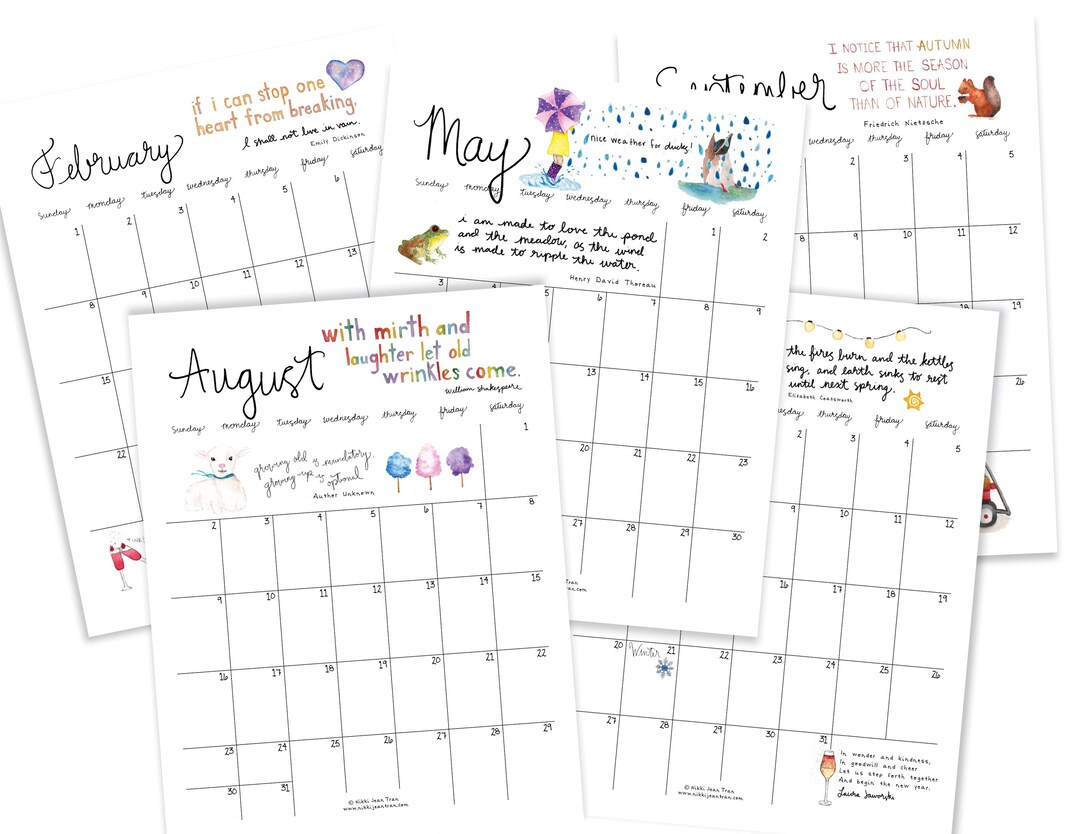 February
if i can stop one
heart from breaking,
I shall not live in vain.
Emily Dickinson
Sunday monday tuesday wednesday thursday friday saturday
1 2 3 4 5 6
8 9 10 11 12 13
15
22
TINK!
May
nice weather for ducks!
Sunday monday tuesday wednesday thursday friday saturday
i am made to love the pond
and the meadow, as the wind
is made to ripple the water.
Henry David Thoreau
1 2
3 4 5 6 7 8 9
13 14 15 16
20 21 22 23
27 28 29 30
Tran
September
I NOTICE THAT AUTUMN
IS MORE THE SEASON
OF THE SOUL
THAN OF NATURE.
Friedrich Nietzsche
wednesday thursday friday saturday
2 3 4 5
8 9 10 11 12
18 19
26
August
with mirth and
laughter let old
wrinkles come.
William Shakespeare
Sunday monday tuesday wednesday thursday friday saturday
growing old is mandatory,
growing up is optional
Author Unknown
1
2 3 4 5 6 7 8
9 10 11 12 13 14 15
16 17 18 19 20 21 22
23 24 25 26 27 28 29
30 31
© Nikki Jean Tran
www.nikkijeantran.com
the fires burn and the kettles
sing, and earth sinks to rest
until next spring.
Elizabeth Coatsworth
thursday friday saturday
2 3 4 5
9 10 11 12
16 17 18 19
20 Winter 21 22 23 24 25 26
27 28 29 30 31
In wonder and kindness,
In goodwill and cheer
Let us step forth together
And begin the new year.
Laura Jaworski
© Nikki Jean Tran
www.nikkijeantran.com